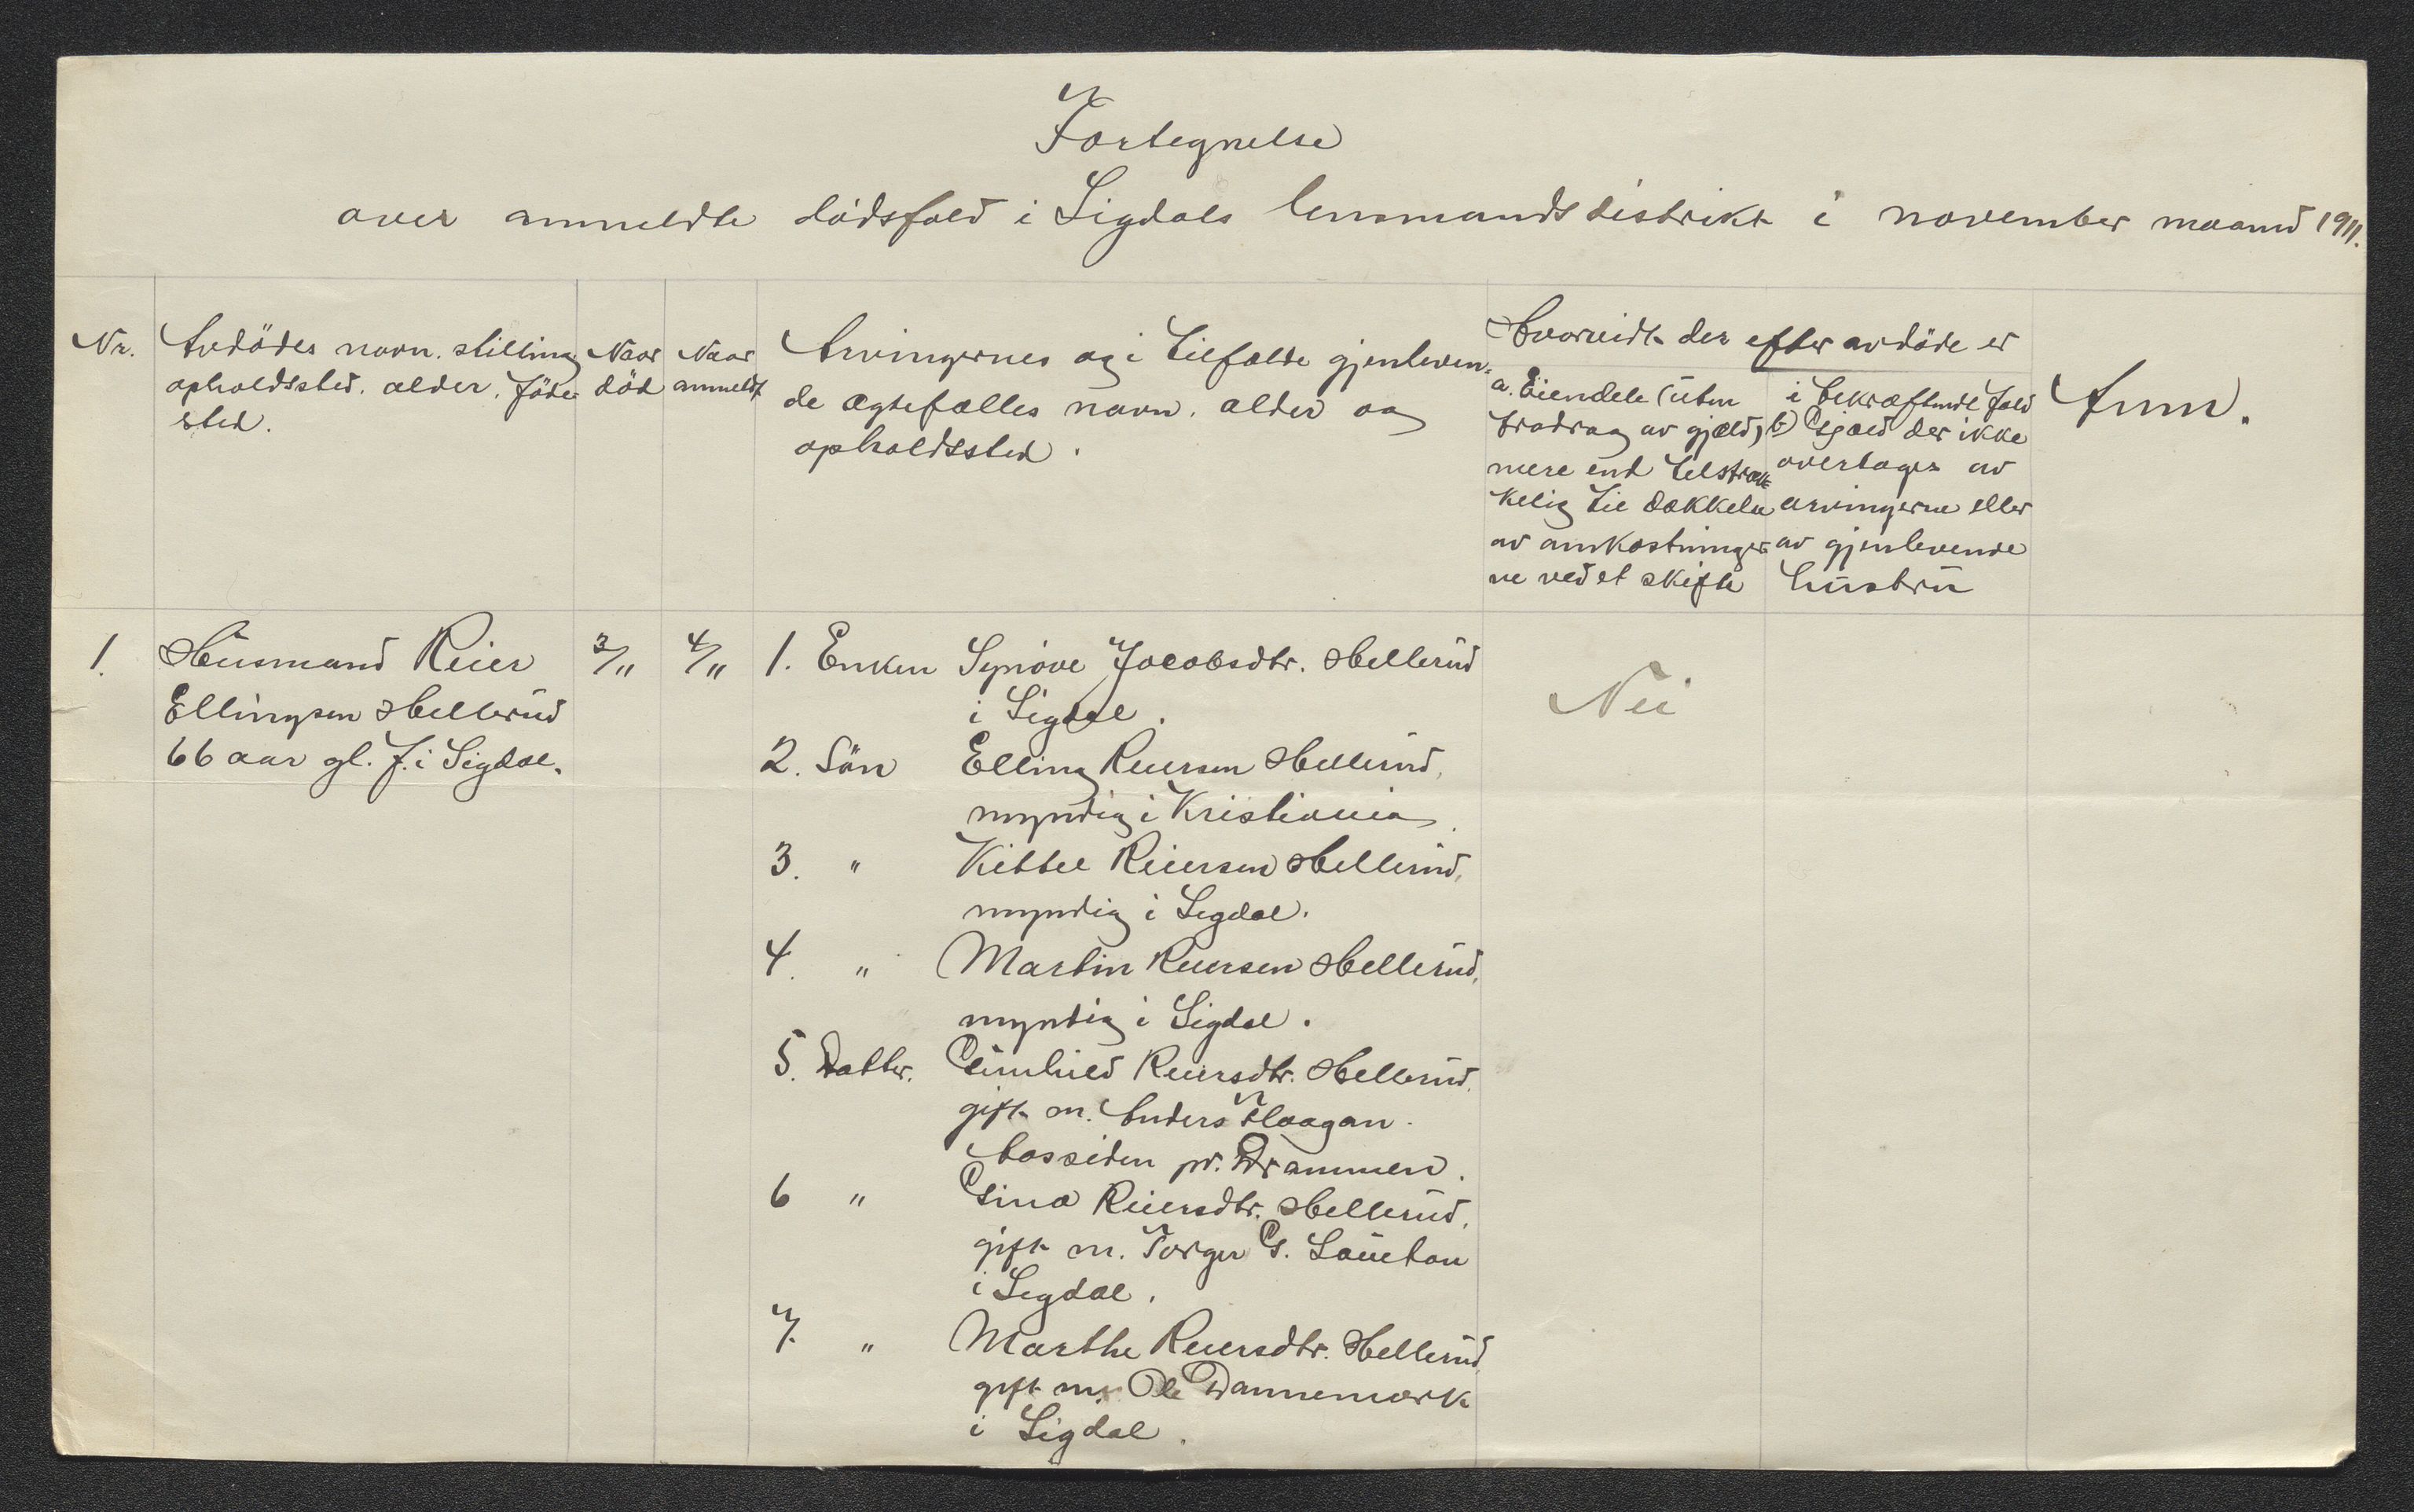 Fortegnelse
over anmeldte dödsfald i Sigdals lensmandsdistrikt i november maaned 1911.
Nr.
Avdödes navn. stilling
opholdssted. alder. föde-
sted.
Naar
död
Naar
anmeldt
Arvingernes og i tilfælde gjenleven-
de ægtefælles navn. alder og
opholdssted.
Hvorvidt der efter avdöde er
a. Eiendele (uten
fradrag av gjæld)
mere end tilstræk-
kelig til dækkelse
av omkostninger-
ne ved et skifte
i bekræftende fald
b) Gjæld der ikke
overtages av
arvingerne eller
av gjenlevende
hustru
Anm.
1.
Husmand Reier
Ellingsen Hellerud
66 aar gl. f. i Sigdal.
3/11
4/11
1. Enken Synöve Jacobsdtr. Hellerud
i Sigdal.
2. Sön Elling Reiersen Hellerud,
myndig i Kristiania.
3. " Kittel Reiersen Hellerud,
myndig i Sigdal.
4. " Martin Reiersen Hellerud,
myndig i Sigdal.
5. Datter. Gunhild Reiersdtr. Hellerud,
gift m. Anders Flaagan.
Aassiden pr. Drammen.
6 " Gina Reiersdtr. Hellerud,
gift m. Torger G.
i Sigdal.
7. " Marthe Reiersdtr. Hellerud,
gift m. Ole Dannemark
i Sigdal.
Nei